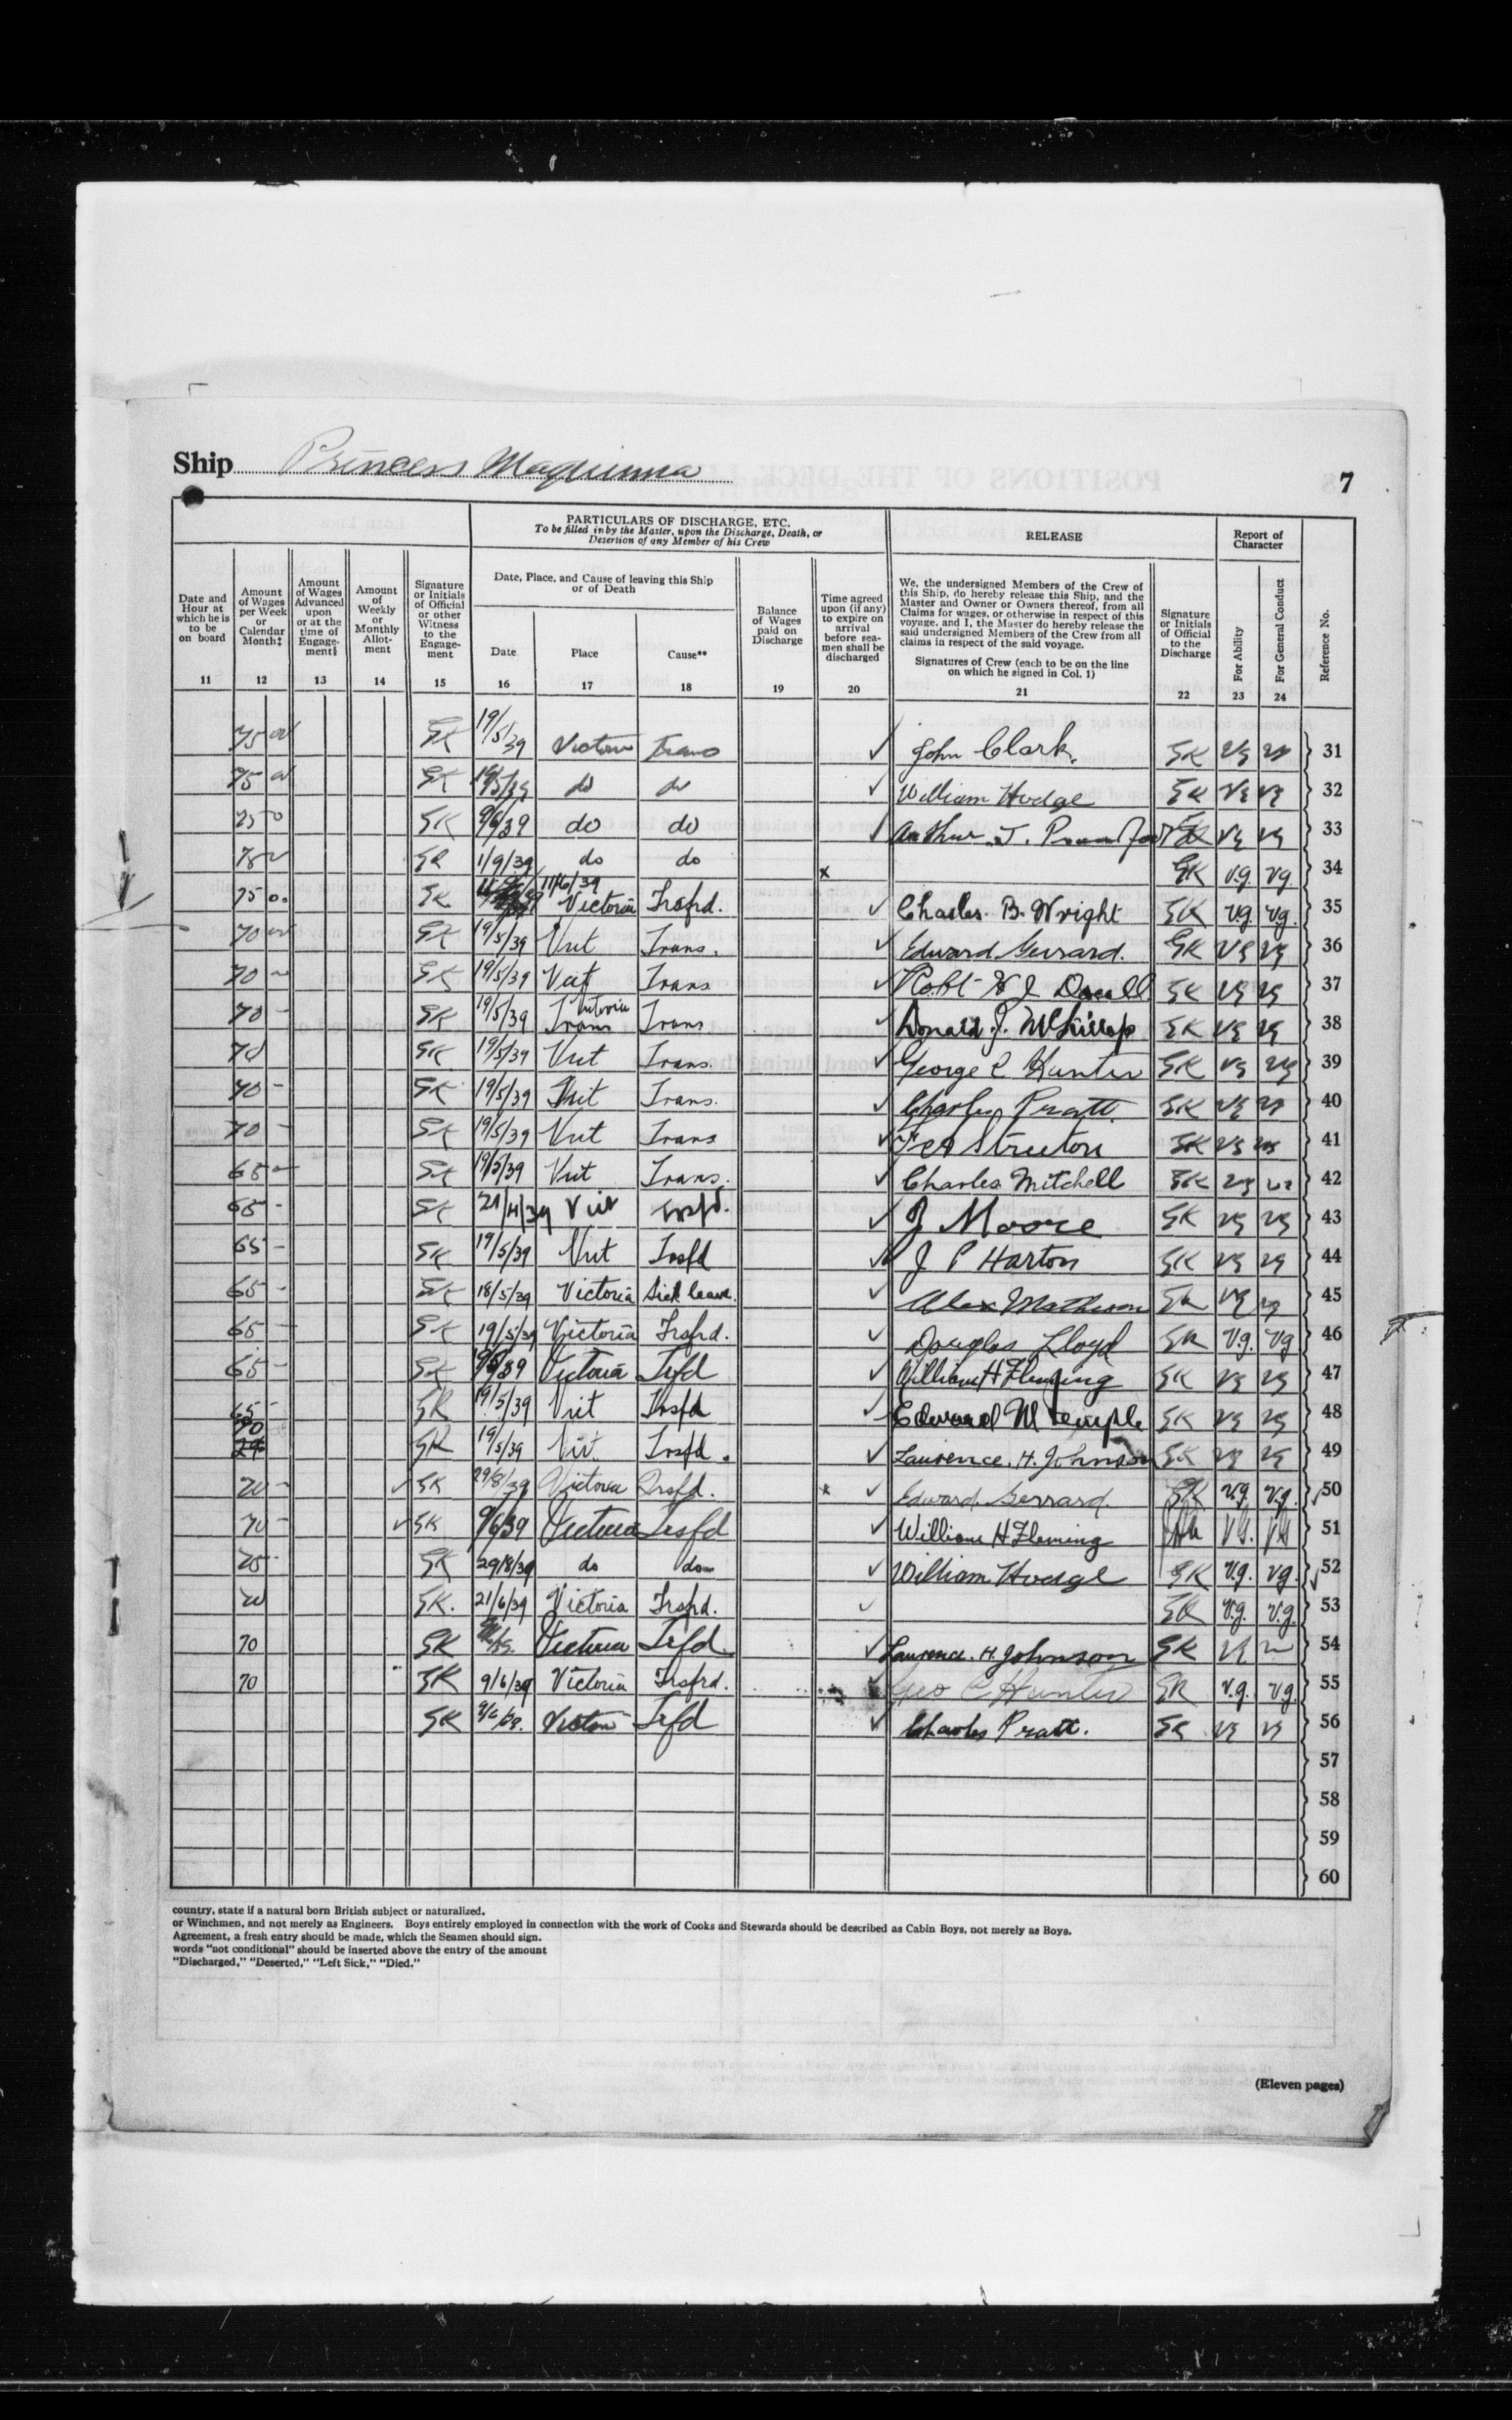 Ship Princess Maquinna 7
PARTICULARS OF DISCHARGE, ETC.
To be filled in by the Master, upon the Discharge, Death, or
Desertion of any Member of his Crew
RELEASE
Report of
Character
Date and
Hour at
which he is
to be
on board
Amount
of Wages
per Week
or
Calendar
Month‡
Amount
of Wages
Advanced
upon
or at the
time of
Engage-
ment§
Amount
of
Weekly
or
Monthly
Allot-
ment
Signature
or Initials
of Official
or other
Witness
to the
Engage-
ment
Date, Place, and Cause of leaving this Ship
or of Death
Date
Place
Cause**
Balance
of Wages
paid on
Discharge
Time agreed
upon (if any)
to expire on
arrival
before sea-
men shall be
discharged
We, the undersigned Members of the Crew of
this Ship, do hereby release this Ship, and the
Master and Owner or Owners thereof, from all
Claims for wages, or otherwise in respect of this
voyage, and I, the Master do hereby release the
said undersigned Members of the Crew from all
claims in respect of the said voyage.
Signatures of Crew (each to be on the line
on which he signed in Col. 1)
Signature
or Initials
of Official
to the
Discharge
For Ability
For General Conduct
Reference No.
11 12 13 14 15 16 17 18 19 20 21 22 23 24
75 GK 19/5/39 Victoria Trans ✓ John Clark. GK vg vg 31
75 GK 19/5/39 do do ✓ William Hodge GK vg vg 32
GK 9/6/39 do do ✓ Arthur J. GK vg vg 33
GK 1/9/39 do do x GK v.g. vg. 34
75 GK 11/6/39 Victoria Trsfrd. ✓ Charles. B. Wright GK vg. vg. 35
70 GK 19/5/39 Vict Trans. ✓ Edward Gerrard. GK vg vg 36
70 GK 19/5/39 Vict Trans ✓ Robt GK vg vg 37
70 - GK 19/5/39 Victoria Trans ✓ Donald J. McKillop GK vg vg 38
70 GK 19/5/39 Vict Trans. ✓ George C Hunter GK vg vg 39
70 - GK 19/5/39 Vict Trans. ✓ Charles Pratt. GK vg vg 40
70 - GK 19/5/39 Vict Trans ✓ Streeton GK vg vg 41
65 GK 19/5/39 Vict Trans. ✓ Charles Mitchell GK vg vg 42
65 - GK 21/4/39 Vic Trsfd. ✓ J Moore GK vg vg 43
65 - GK 19/5/39 Vict Trsfd ✓ J P Harton GK vg vg 44
65 - GK 18/5/39 Victoria Sick leave. ✓ Alex Matheson GK vg vg 45
65 - GK 19/5/39 Victoria Trsfrd. ✓ Douglas Lloyd GK v.g. vg 46
65 - GK 19/5/39 Victoria Trsfd ✓ William H Fleming GK vg vg 47
65 - GK 19/5/39 Vict Trsfd ✓ Edward M Temple GK vg vg 48
70 GK 19/5/39 Vic. Trsfd. ✓ Laurence. H. Johnson GK vg vg 49
70 - ✓ GK 29/8/39 Victoria Trsfd. x ✓ Edward. Gerrard. GK v.g. v.g. ✓ 50
70 - ✓ GK 9/6/39 Victoria Trsfd ✓ William H Fleming V.G. VG 51
GK 29/8/39 do do ✓ William Hodge GK v.g. vg ✓ 52
GK. 21/6/39 Victoria Trsfrd. ✓ GK v.g. v.g. 53
70 GK Victoria Trsfd ✓ Laurence. H. Johnson GK 54
70 GK 9/6/39 Victoria Trsfrd. ✓ Geo C Hunter GK v.g. vg. 55
GK 9/6/39. Victoria Trsfd ✓ Charles Pratt. GK vg vg 56
57
58
59
60
country, state if a natural born British subject or naturalized.
or Winchmen, and not merely as Engineers. Boys entirely employed in connection with the work of Cooks and Stewards should be described as Cabin Boys, not merely as Boys.
Agreement, a fresh entry should be made, which the Seamen should sign.
words "not conditional" should be inserted above the entry of the amount
"Discharged," "Deserted," "Left Sick," "Died."
(Eleven pages)